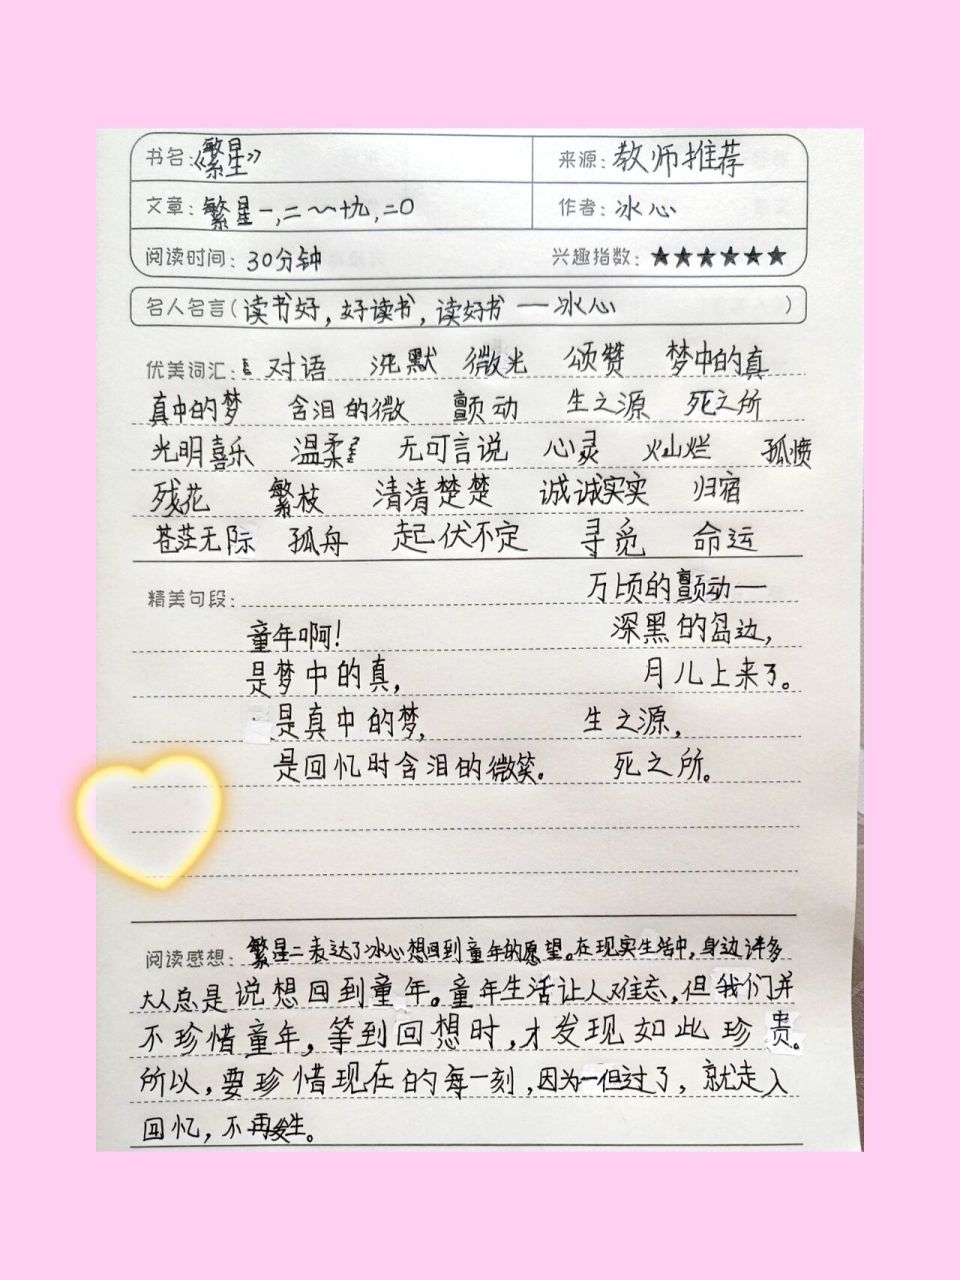 书名:《繁星》 来源:教师推荐
文章:繁星一,二~十九,二0 作者:冰心
阅读时间:30分钟 兴趣指数:★★★★★★
名人名言(读书好,好读书,读好书 ——冰心)
优美词汇: 对语 沈默 微光 颂赞 梦中的真
真中的梦 含泪的微 颤动 生之源 死之所
光明喜乐 温柔 无可言说 心灵 灿烂 孤愤
残花 繁枝 清清楚楚 诚诚实实 归宿
苍茫无际 孤舟 起伏不定 寻觅 命运
精美句段: 万顷的颤动—
童年啊! 深黑的岛边,
是梦中的真, 月儿上来了。
是真中的梦, 生之源,
是回忆时含泪的微笑。 死之所。
阅读感想:繁星二表达了冰心想回到童年的愿望。在现实生活中,身边许多
大人总是说想回到童年。童年生活让人难忘,但我们并
不珍惜童年,等到回想时,才发现如此珍贵。
所以,要珍惜现在的每一刻,因为一但过了,就走入
回忆,不再发生。